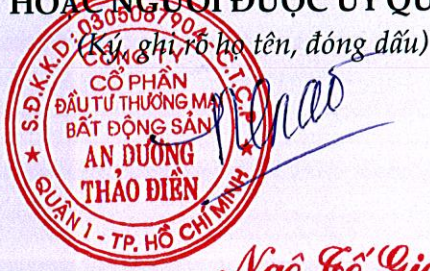 HOẶC NGƯỜI ĐƯỢC ỦY QU
(Ký, ghi rõ họ tên, đóng dấu)
S.Đ.K.K.D: 0305087904 - C.T.C.P
CÔNG TY
CỔ PHẦN
ĐẦU TƯ THƯƠNG MẠI
BẤT ĐỘNG SẢN
AN DƯƠNG
THẢO ĐIỀN
QUẬN 1 - TP. HỒ CHÍ MINH
Ngô